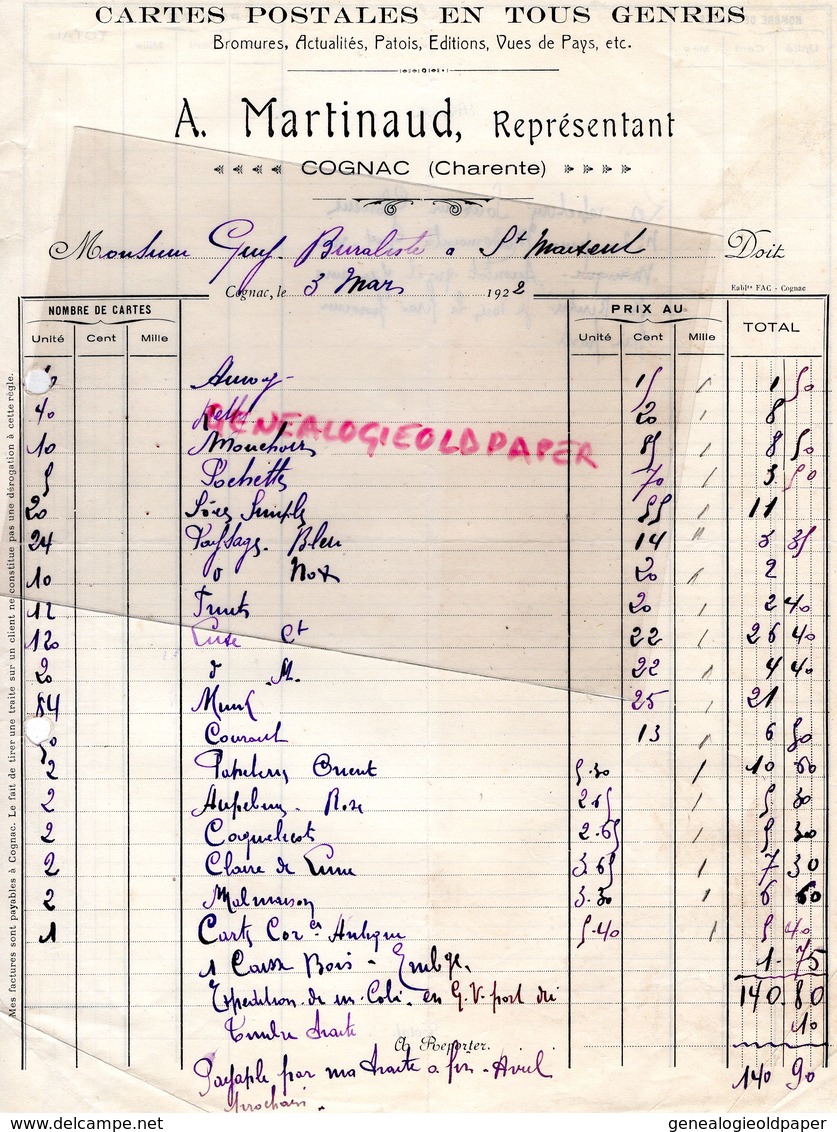 CARTES POSTALES EN TOUS GENRES
Bromures, Actualités, Patois, Editions, Vues de Pays, etc.
A. Martinaud, Représentant
COGNAC (Charente)
Monsieur Guy. Buraliste a St Maixent Doit
Cognac, le 3 Mars 1922
Etablts FAC - Cognac
NOMBRE DE CARTES PRIX AU TOTAL
Unité Cent Mille Unité Cent Mille
10 15 / 1 50
40 20 / 8
GENEALOGIEOLDPAPER
10 Mouchoirs 85 / 8 50
5 Pochettes 70 / 3 50
20 Simples 55 / 11
24 Paysage. Bleu 14 " 3 35
10 d° 20 / 2
12 Fruits 20 / 2 40
120 Luxe Ct 22 / 26 40
20 d° M. 22 / 4 40
84 25 / 21
50 Courant 13 / 6 50
2 Papeteries Orient 5.30 / 10 60
2 Rose 2.65 / 5 30
2 Coquelicots 2.65 / 5 30
2 Claire de Lune 3.65 / 7 30
2 Malmaison 3.30 / 6 60
1 Carte Cor ce Antique 5.40 / 5 40
1 Caisse Bois - Emblge. 1 75
Expédition de un Coli. en G.V. port du 140.80
Timbre traite 10
A Reporter.
Payable par ma traite a fin - Avril 140 90
prochain.
Mes factures sont payables à Cognac. Le fait de tirer une traite sur un client ne constitue pas une dérogation à cette règle.
delcampe.net
genealogieoldpaper